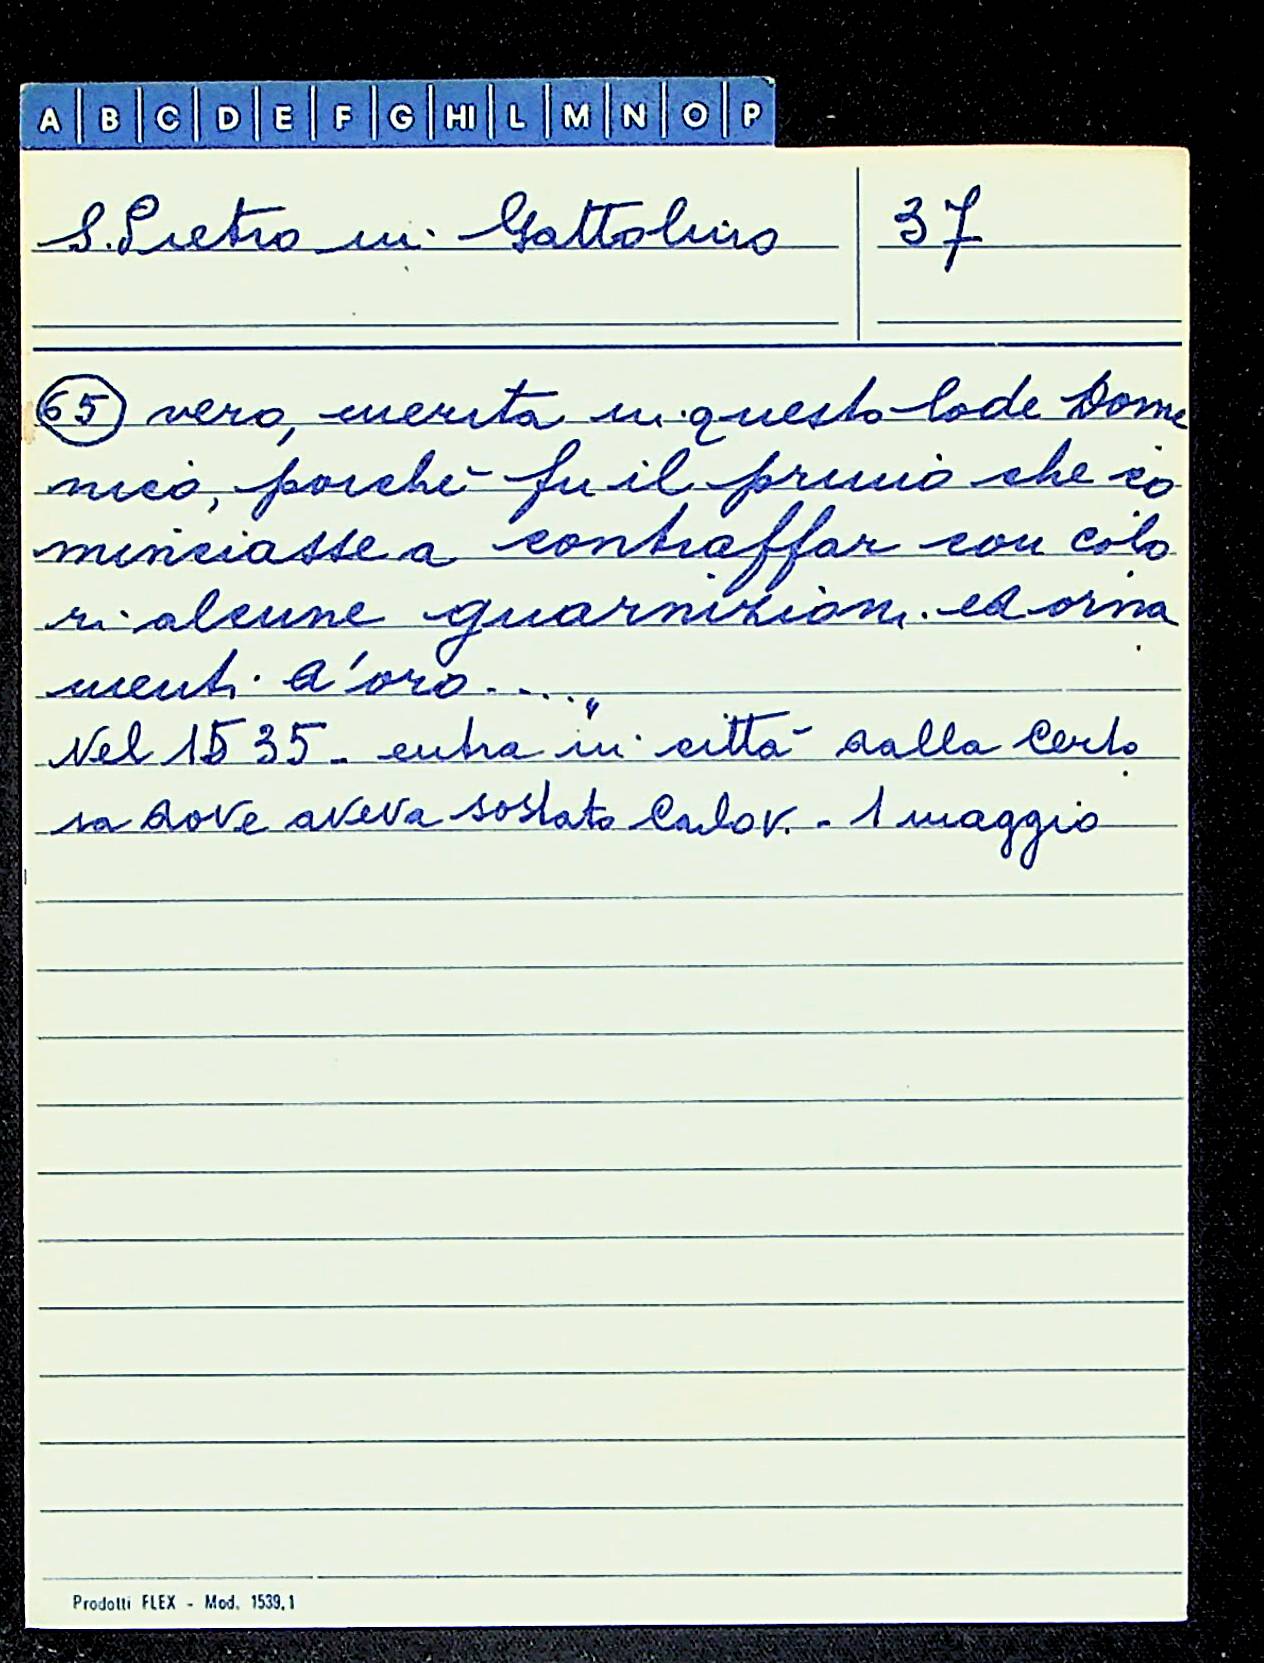 A B C D E F G HI L M N O P
S. Pietro in Gattolino 37
65 vero, merita in questo lode Dome
nico, poiché fu il primo che co
minciasse a contraffar con colo
ri alcune guarnizioni ed orna
menti d'oro....."
Nel 1535 - entra in città dalla Certo
sa dove aveva sostato Carlo V. - 1 maggio
Prodotti FLEX - Mod. 1539,1